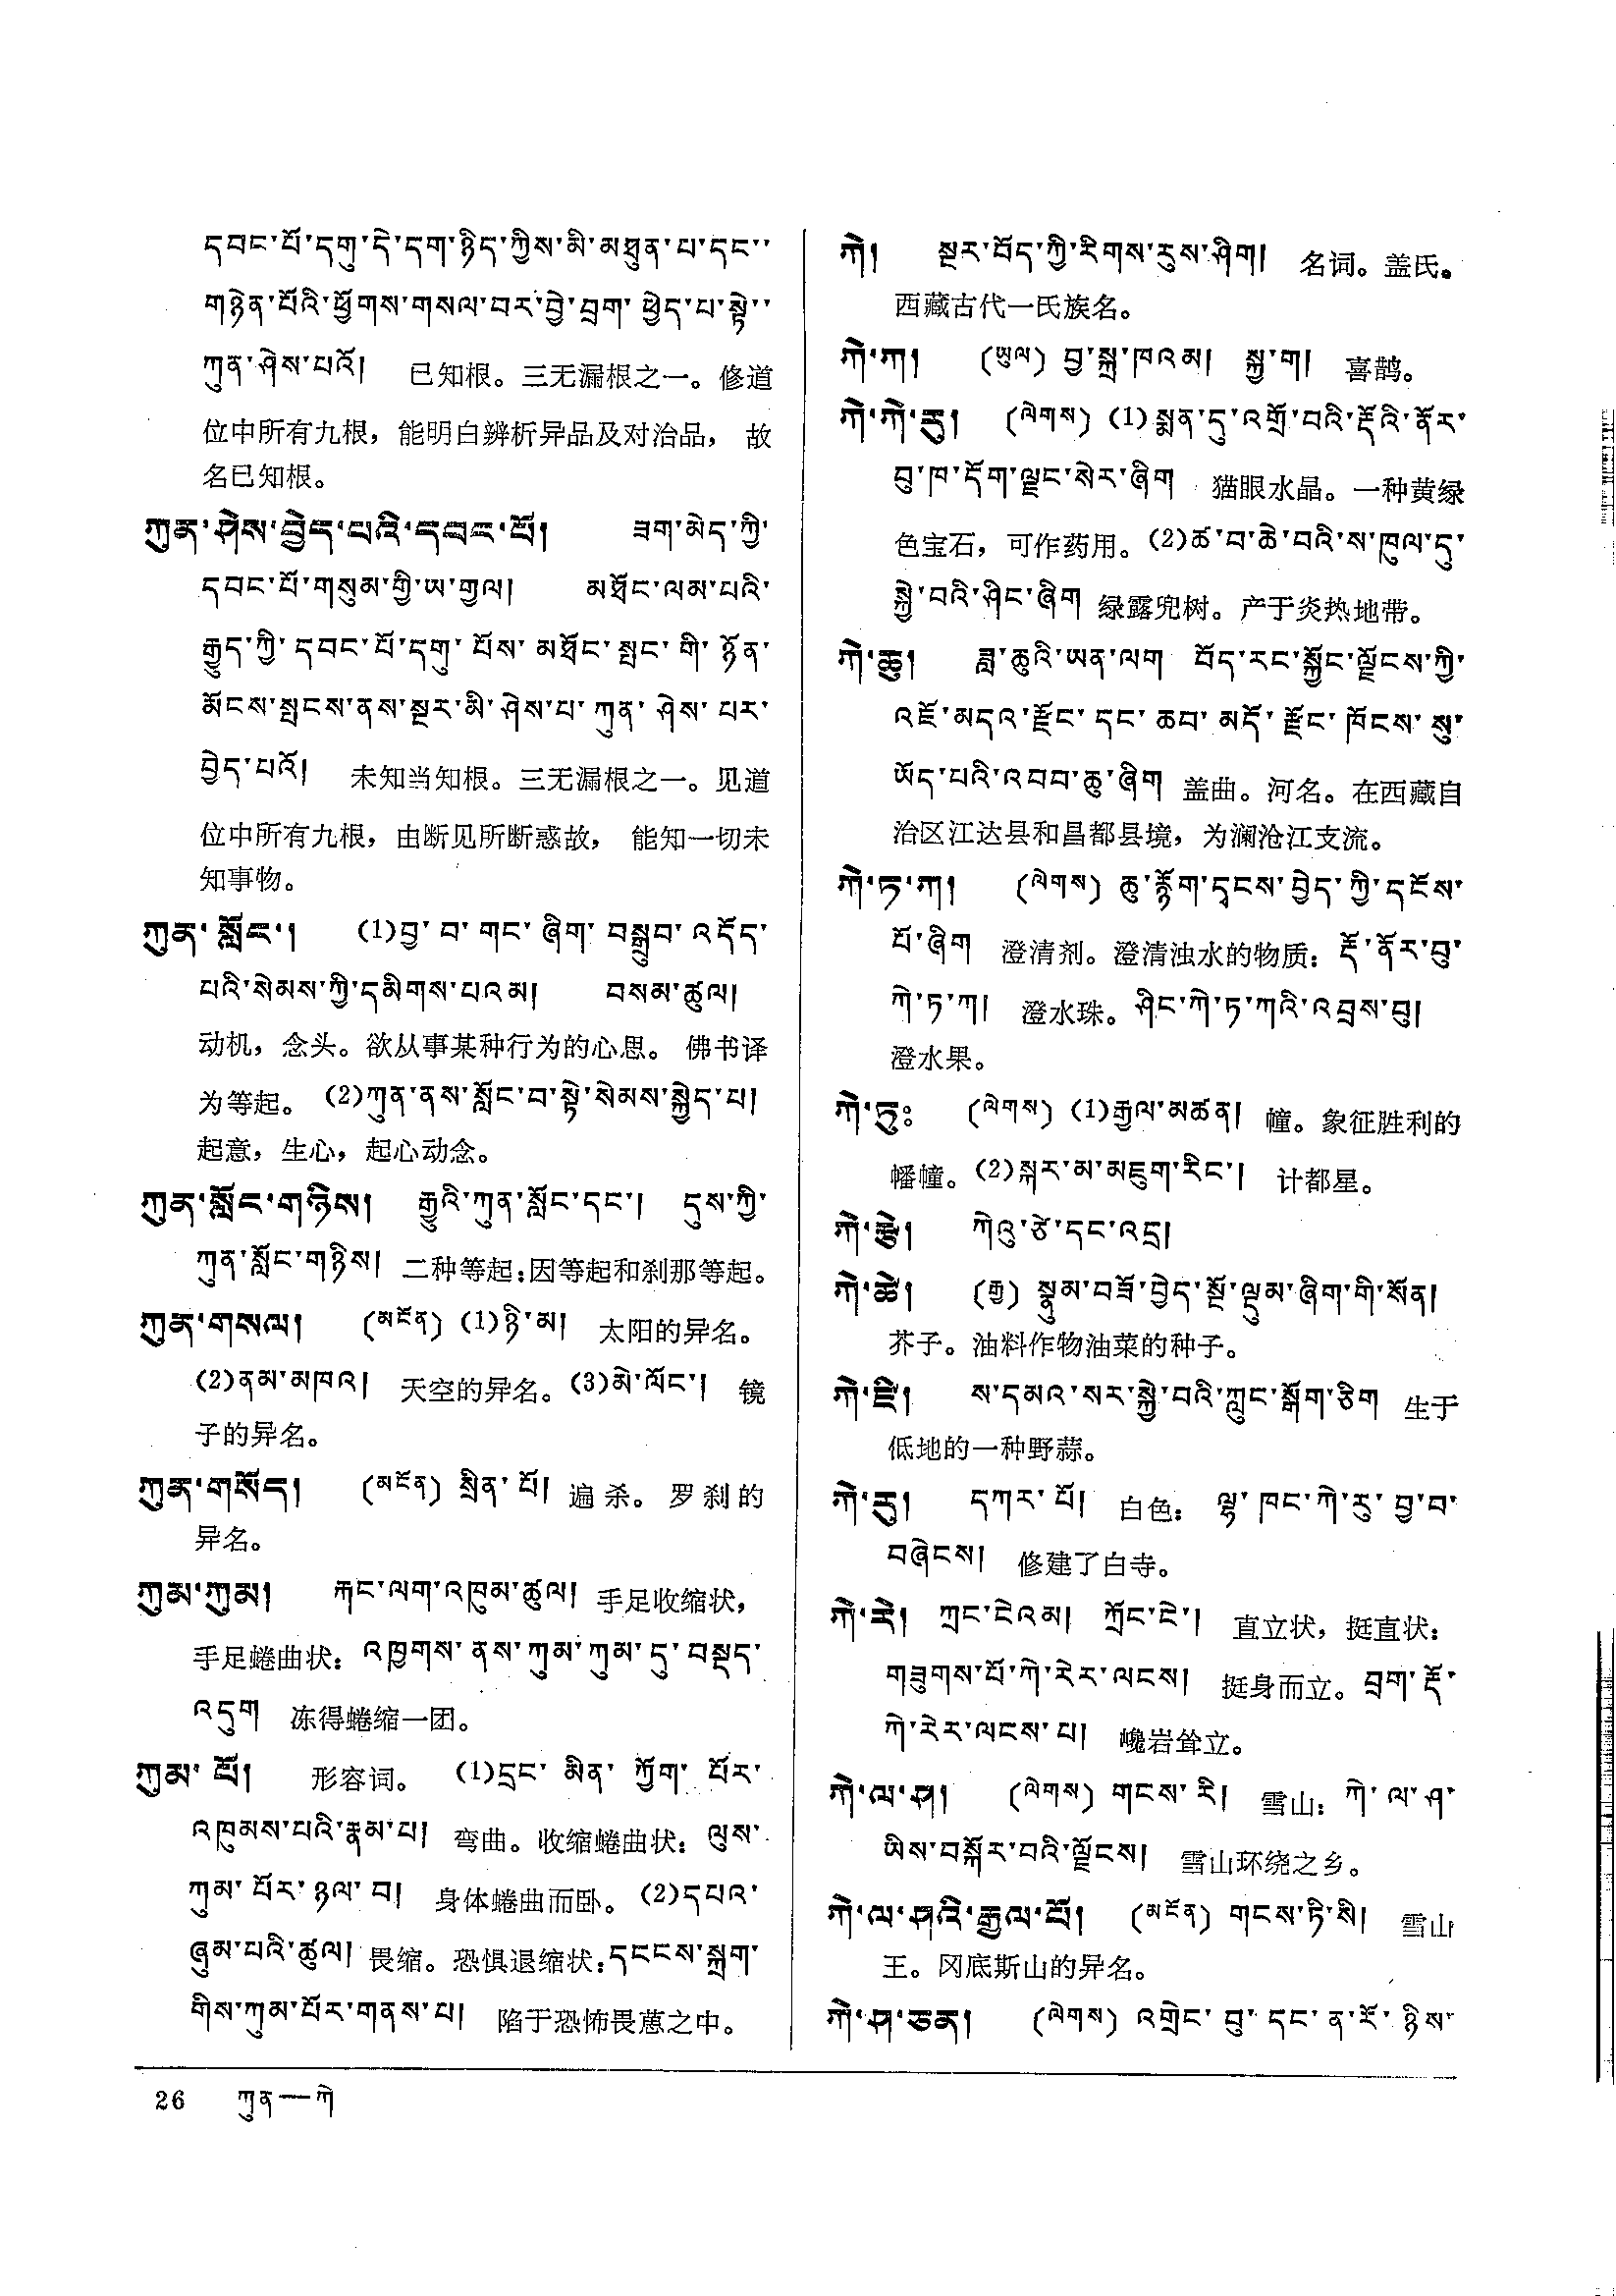 དབང་པོ་དགུ་དེ་དག་ཉིད་ཀྱིས་མི་མཐུན་པ་དང་་
གཉེན་པོའི་ཕྱོགས་གསལ་བར་བྱེ་བྲག་ཕྱེད་པ་སྟེ་་
ཀུན་ཤེས་པའོ། 已知根。三无漏根之一。修道
位中所有九根，能明白辨析异品及对治品，故
名已知根。
ཀུན་ཤེས་བྱེད་པའི་དབང་པོ། ཟག་མེད་ཀྱི་
དབང་པོ་གསུམ་གྱི་ཡ་གྱལ། མཐོང་ལམ་པའི་
རྒྱུད་ཀྱི་དབང་པོ་དགུ་པོས་མཐོང་སྤང་གི་ཉོན་
མོངས་སྤངས་ནས་སྔར་མི་ཤེས་པ་ཀུན་ཤེས་པར་
བྱེད་པའོ། 未知当知根。三无漏根之一。见道
位中所有九根，由断见所断惑故，能知一切未
知事物。
ཀུན་སློང་། (1)བྱ་བ་གང་ཞིག་བསྒྲུབ་འདོད་
པའི་སེམས་ཀྱི་དམིགས་པའམ། བསམ་ཚུལ།
动机，念头。欲从事某种行为的心思。佛书译
为等起。(2)ཀུན་ནས་སློང་བ་སྟེ་སེམས་སྐྱེད་པ།
起意，生心，起心动念。
ཀུན་སློང་གཉིས། རྒྱུའི་ཀུན་སློང་དང་། དུས་ཀྱི་
ཀུན་སློང་གཉིས། 二种等起：因等起和刹那等起。
ཀུན་གསལ། (མངོན) (1)ཉི་མ། 太阳的异名。
(2)ནམ་མཁའ། 天空的异名。(3)མེ་ལོང་། 镜
子的异名。
ཀུན་གསོད། (མངོན) སྲིན་པོ། 遍杀。罗刹的
异名。
ཀུམ་ཀུམ། རྐང་ལག་འཁུམ་ཚུལ། 手足收缩状，
手足蜷曲状：འཁྱགས་ནས་ཀུམ་ཀུམ་དུ་བསྡད་
འདུག 冻得蜷缩一团。
ཀུམ་པོ། 形容词。(1)དྲང་མིན་ཀྱོག་པོར་
འཁུམས་པའི་རྣམ་པ། 弯曲。收缩蜷曲状：ལུས་
ཀུམ་པོར་ཉལ་བ། 身体蜷曲而卧。(2)དཔའ་
ཞུམ་པའི་ཚུལ། 畏缩。恐惧退缩状：དངངས་སྐྲག་
གིས་ཀུམ་པོར་གནས་པ། 陷于恐怖畏葸之中。
ཀེ། སྔར་བོད་ཀྱི་རིགས་རུས་ཤིག། 名词。盖氏。
西藏古代一氏族名。
ཀེ་ཀ། (ཡུལ) བྱ་སྐྲ་ཁའམ། སྐྱ་ག། 喜鹊。
ཀེ་ཀེ་རུ། (ལེགས) (1)སྨན་དུ་འགྲོ་བའི་རྡོའི་ནོར་
བུ་ཁ་དོག་ལྗང་སེར་ཞིག 猫眼水晶。一种黄绿
色宝石，可作药用。(2)ཚ་བ་ཆེ་བའི་ས་ཁུལ་དུ་
སྐྱེ་བའི་ཤིང་ཞིག 绿露兜树。产于炎热地带。
ཀེ་ཆུ། ཟླ་ཆུའི་ཡན་ལག བོད་རང་སྐྱོང་ལྗོངས་ཀྱི་
འཇོ་མདའ་རྫོང་དང་ཆབ་མདོ་རྫོང་ཁོངས་སུ་
ཡོད་པའི་འབབ་ཆུ་ཞིག 盖曲。河名。在西藏自
治区江达县和昌都县境，为澜沧江支流。
ཀེ་ཏ་ཀ། (ལེགས) ཆུ་རྙོག་དྭངས་བྱེད་ཀྱི་དངོས་
པོ་ཞིག 澄清剂。澄清浊水的物质：རྡོ་ནོར་བུ་
ཀེ་ཏ་ཀ། 澄水珠。ཤིང་ཀེ་ཏ་ཀའི་འབྲས་བུ།
澄水果。
ཀེ་ཏུཿ (ལེགས) (1)རྒྱལ་མཚན། 幢。象征胜利的
幡幢。(2)སྐར་མ་མཇུག་རིང་། 计都星。
ཀེ་རྩེ། ཀེའུ་ཙེ་དང་འདྲ།
ཀེ་ཚེ། (རྒྱ) སྣུམ་བཟོ་བྱེད་སྔོ་ལྡུམ་ཞིག་གི་སོན།
芥子。油料作物油菜的种子。
ཀེ་ཇི། ས་དམའ་སར་སྐྱེ་བའི་ཀླུང་སྒོག་ཅིག 生于
低地的一种野蒜。
ཀེ་རུ། དཀར་པོ། 白色：ལྷ་ཁང་ཀེ་རུ་བྱ་བ་
བཞེངས། 修建了白寺。
ཀེ་རེ། ཀྲང་ངེའམ། ཀྲོང་ངེ་། 直立状，挺直状：
གཟུགས་པོ་ཀེ་རེར་ལངས། 挺身而立。བྲག་རྡོ་
ཀེ་རེར་ལངས་པ། 巉岩耸立。
ཀེ་ལ་ཤ། (ལེགས) གངས་རི། 雪山：ཀེ་ལ་ཤ་
ཡིས་བསྐོར་བའི་ལྗོངས། 雪山环绕之乡。
ཀེ་ལ་ཤའི་རྒྱལ་པོ། (མངོན) གངས་ཏི་སི། 雪山
王。冈底斯山的异名。
ཀེ་ཤ་ཅན། (ལེགས) འགྲེང་བུ་དང་ན་རོ་ཉིས་
26 ཀུན—ཀེ